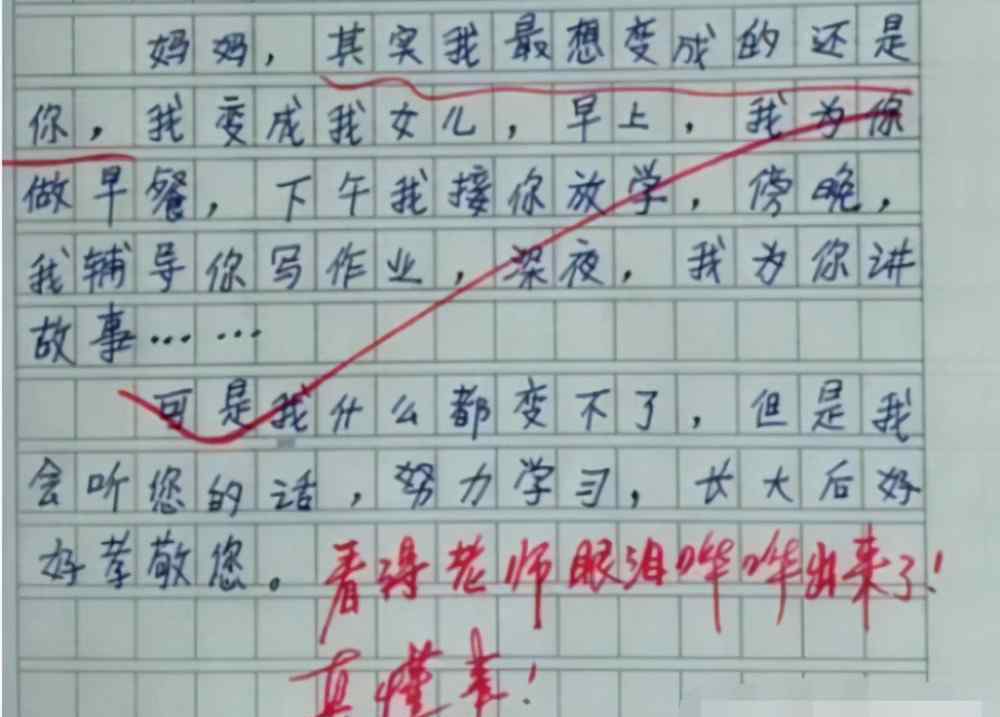 妈妈，其实我最想变成的还是
你，我变成我女儿，早上，我为你
做早餐，下午我接你放学，傍晚，
我辅导你写作业，深夜，我为你讲
故事……
可是我什么都变不了，但是我
会听您的话，努力学习，长大后好
好孝敬您。看得老师眼泪哗哗出来了！
真懂事！